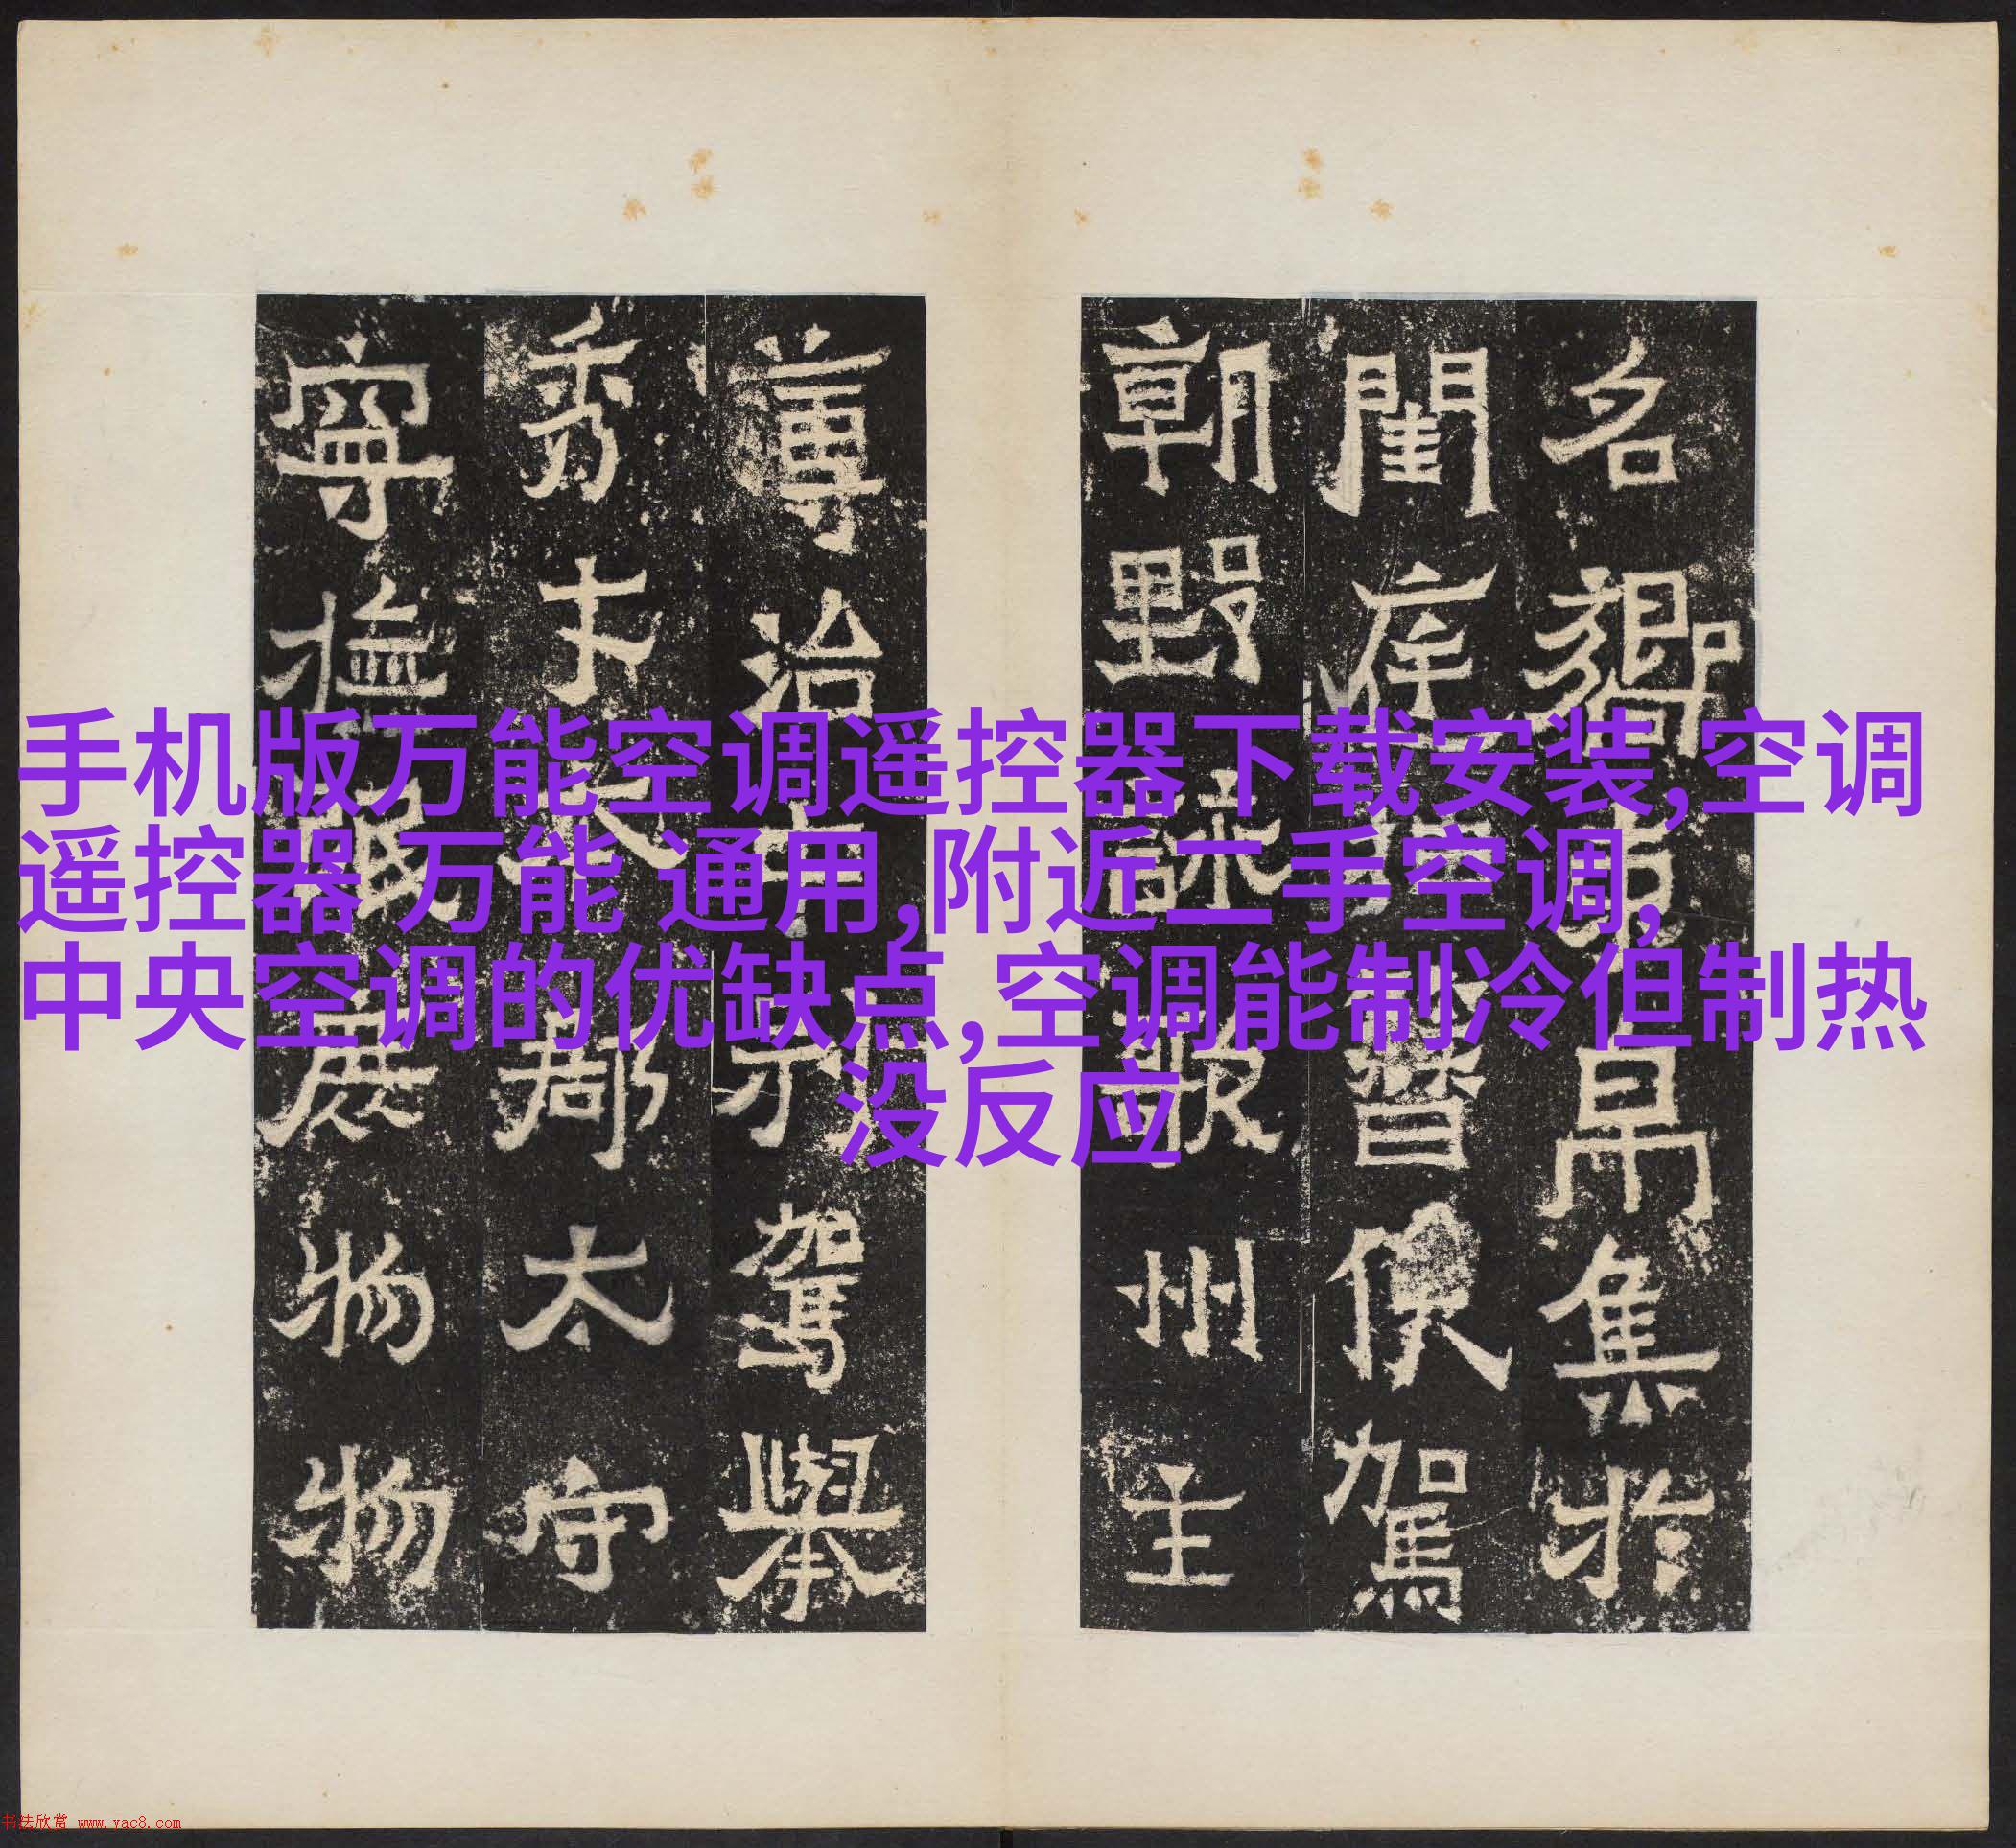 手机版万能空调遥控器下载安装,空调
遥控器 万能 通用,附近二手空调,
中央空调的优缺点,空调能制冷但制热
没反应
名鄉束帛集於
閨庭抽簪俟駕
朝野詠歌州主
簿治中別駕舉
秀才本郡太守
寧撫氓庶物物
书法欣赏 www.yac8.com